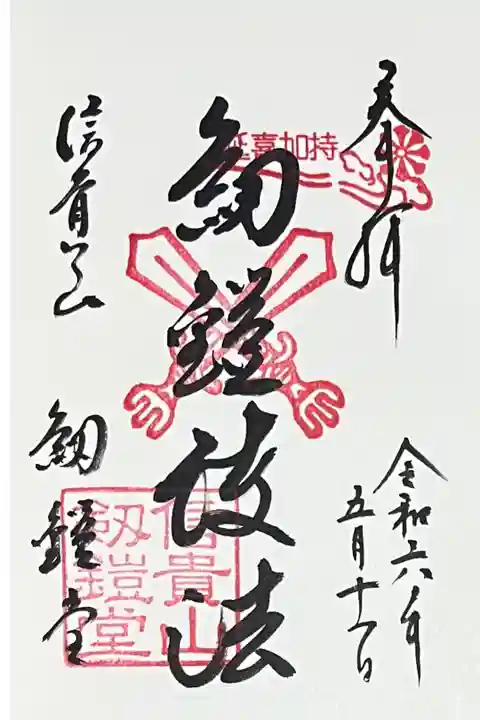 奉拝
延喜加持
剱鎧護法
信貴山
剱鎧堂
令和六年
五月十一日
信貴山
剱鎧堂